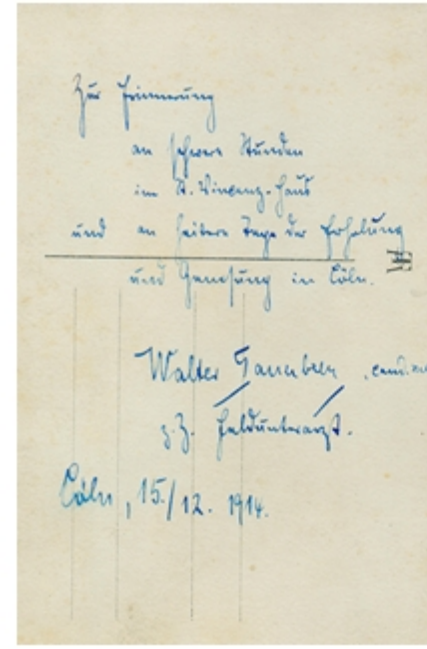 Zur Erinnerung
an schwere Stunden
im St. Vinzenz-Haus
und an heitere Tage der Erholung
und Genesung in Cöln.
Walter , cand.
z. Z. Feldunterarzt.
Cöln, 15./12. 1914.